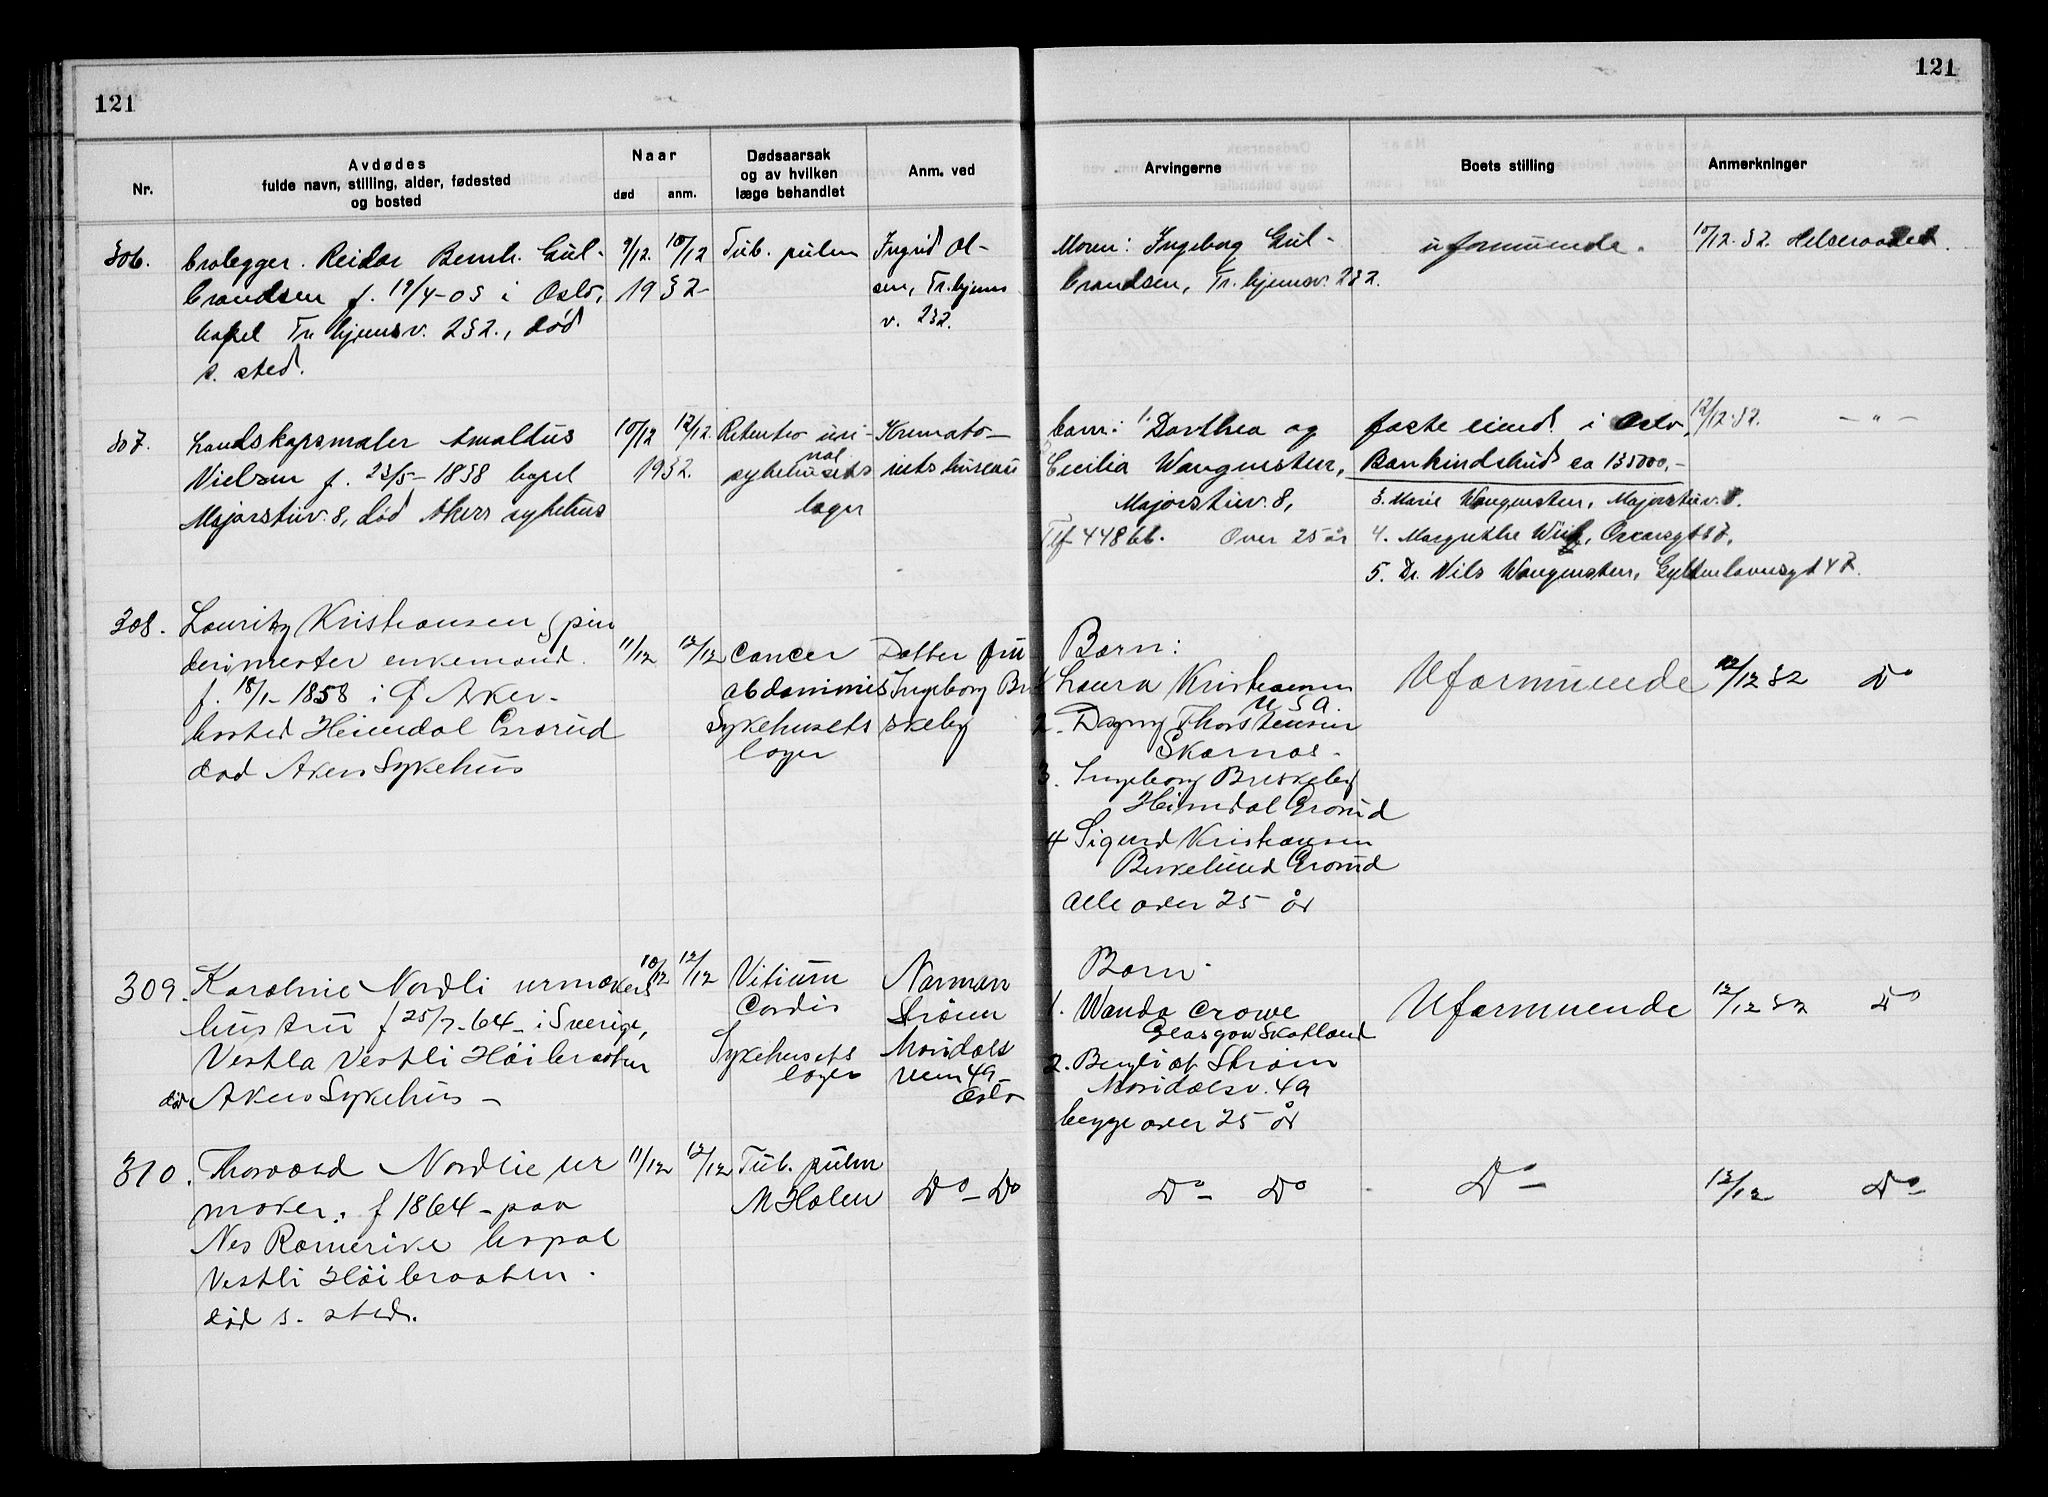 121
121
Nr.
Avdødes
fulde navn, stilling, alder, fødested
og bosted
Naar
død
anm.
Dødsaarsak
og av hvilken
læge behandlet
Anm. ved
Arvingerne
Boets stilling
Anmerkninger
306.
brolegger. Reidar Bernh. Gul-
brandsen f. 19/4-03 i Oslo,
bopel Tr. hjemsv. 232., død
s. sted.
9/12. 10/12
1932
Tub. pulm
Ingrid Ol-
sen, Tr.hjems
v. 232.
Moren: Ingeborg Gul-
brandsen, Tr. hjemsv. 232.
uformuende.
10/12.32. Helseraadet.
307.
Landskapsmaler Amaldus
Nielsen f. 23/5-1838 bopel
Majorstuv. 8, død Akers sykehus
10/12 12/12.
1932.
Retentio uri-
nal
sykehusets
læger
Kremato-
riets bureau
barn: 1. Dorthea og
Cecilia Wangensten,
Majorstuv. 8,
Tlf 44866. Over 25 år
faste eiend. i Oslo,
Bankindskud ca 135000,-
3. Marie Wangensten, Majorstuv. 8.
4. Margrethe Wiik, Oscarsgt 87.
5. Dr. Nils Wangensten, Gyldenløvesgt 47.
12/12.32. - " -
308.
Lauritz Kristiansen spin
derimester enkemand.
f. 18/1-1858 i Ø Aker-
bosted Heimdal Grorud
død Akers Sykehus
11/12 12/12
Cancer
abdominis
Sykehusets
læger
Datter fru
Ingeborg Br
skeby
Barn:
1 Laura Kristiansen
U S A.
2. Dagny Thorstensen
Skarnes-
3. Ingeborg Breskeby
Heimdal Grorud
4 Sigurd Kristiansen
Birkelund Grorud
Alle over 25 år
Uformuende
12/12 32 Do
309.
Karoline Nordli urmakers
hustru f 25/7-64- i Sverige,
Vestla Vestli Høibraaten
død Akers Sykehus -
10/12 12/12
Vitium
Cordis
Sykehusets
læger
Norman
Strøm
Maridals
veien 49
Oslo
Barn-
1. Wanda Crowe
Glasgow Skotland
2. Strøm
Maridalsv. 49
begge over 25 år
Uformuende
12/12 32 Do
310.
Thorvald Nordlie ur
maker. f 1864-paa
Nes Romerike bopæl
Vestli Høibraaten.
død s. sted.
11/12 12/12
Tub. pulm
M Holen
Do - Do
Do - Do
Do -
12/12 Do